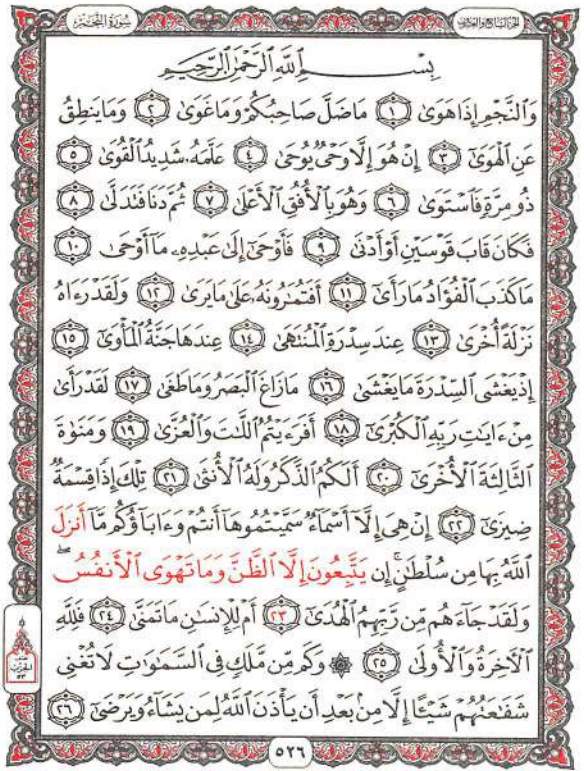 الجزء السابع والعشرون
سورة النجم
بِسْمِ ٱللَّهِ ٱلرَّحْمَٰنِ ٱلرَّحِيمِ
وَٱلنَّجْمِ إِذَا هَوَىٰ ١ مَا ضَلَّ صَاحِبُكُمْ وَمَا غَوَىٰ ٢ وَمَا يَنطِقُ
عَنِ ٱلْهَوَىٰٓ ٣ إِنْ هُوَ إِلَّا وَحْىٌ يُوحَىٰ ٤ عَلَّمَهُۥ شَدِيدُ ٱلْقُوَىٰ ٥
ذُو مِرَّةٍ فَٱسْتَوَىٰ ٦ وَهُوَ بِٱلْأُفُقِ ٱلْأَعْلَىٰ ٧ ثُمَّ دَنَا فَتَدَلَّىٰ ٨
فَكَانَ قَابَ قَوْسَيْنِ أَوْ أَدْنَىٰ ٩ فَأَوْحَىٰٓ إِلَىٰ عَبْدِهِۦ مَآ أَوْحَىٰ ١٠
مَا كَذَبَ ٱلْفُؤَادُ مَا رَأَىٰٓ ١١ أَفَتُمَٰرُونَهُۥ عَلَىٰ مَا يَرَىٰ ١٢ وَلَقَدْ رَءَاهُ
نَزْلَةً أُخْرَىٰ ١٣ عِندَ سِدْرَةِ ٱلْمُنتَهَىٰ ١٤ عِندَهَا جَنَّةُ ٱلْمَأْوَىٰٓ ١٥
إِذْ يَغْشَى ٱلسِّدْرَةَ مَا يَغْشَىٰ ١٦ مَا زَاغَ ٱلْبَصَرُ وَمَا طَغَىٰ ١٧ لَقَدْ رَأَىٰ
مِنْ ءَايَٰتِ رَبِّهِ ٱلْكُبْرَىٰٓ ١٨ أَفَرَءَيْتُمُ ٱللَّٰتَ وَٱلْعُزَّىٰ ١٩ وَمَنَوٰةَ
ٱلثَّالِثَةَ ٱلْأُخْرَىٰٓ ٢٠ أَلَكُمُ ٱلذَّكَرُ وَلَهُ ٱلْأُنثَىٰ ٢١ تِلْكَ إِذًا قِسْمَةٌ
ضِيزَىٰٓ ٢٢ إِنْ هِىَ إِلَّآ أَسْمَآءٌ سَمَّيْتُمُوهَآ أَنتُمْ وَءَابَآؤُكُم مَّآ أَنزَلَ
ٱللَّهُ بِهَا مِن سُلْطَٰنٍ ۚ إِن يَتَّبِعُونَ إِلَّا ٱلظَّنَّ وَمَا تَهْوَى ٱلْأَنفُسُ ۖ
وَلَقَدْ جَآءَهُم مِّن رَّبِّهِمُ ٱلْهُدَىٰٓ ٢٣ أَمْ لِلْإِنسَٰنِ مَا تَمَنَّىٰ ٢٤ فَلِلَّهِ
ٱلْأَخِرَةُ وَٱلْأُولَىٰ ٢٥ ۞ وَكَم مِّن مَّلَكٍ فِى ٱلسَّمَٰوَٰتِ لَا تُغْنِى
شَفَٰعَتُهُمْ شَيْـًٔا إِلَّا مِنۢ بَعْدِ أَن يَأْذَنَ ٱللَّهُ لِمَن يَشَآءُ وَيَرْضَىٰٓ ٢٦
٥٢٦